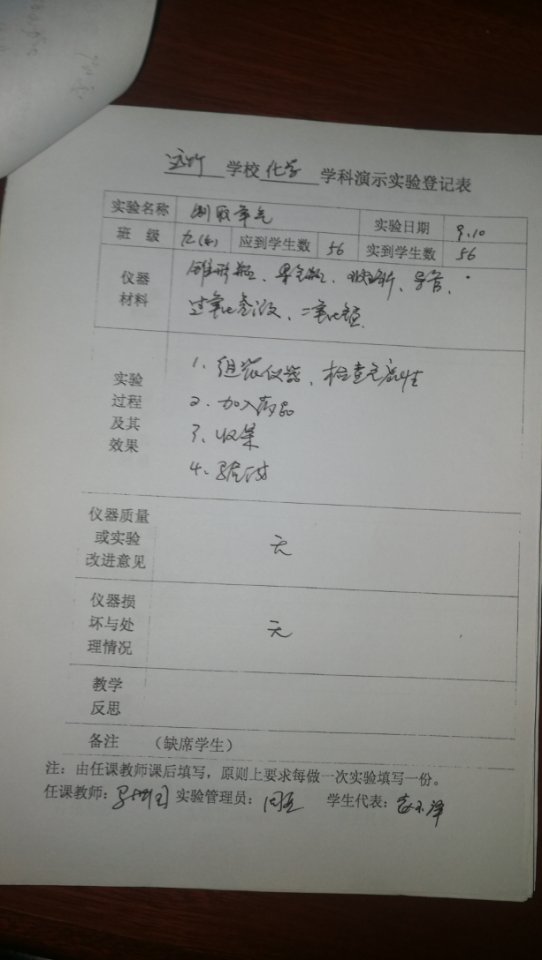 学校 化学 学科演示实验登记表
实验名称 制取氧气 实验日期 9.10
班 级 九(6) 应到学生数 56 实到学生数 56
仪器 锥形瓶、集气瓶、导管、
材料 过氧化氢溶液、二氧化锰
1. 组装仪器、检查气密性
实验
过程 2. 加入药品
及其 3. 收集
效果
4.
仪器质量
或实验 无
改进意见
仪器损
坏与处 无
理情况
教学
反思
备注 （缺席学生）
注：由任课教师课后填写，原则上要求每做一次实验填写一份。
任课教师： 实验管理员： 学生代表：